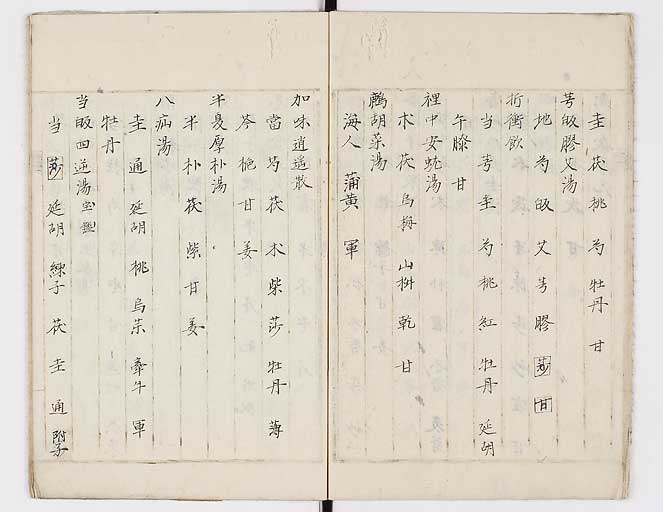 圭 茯 桃 芍 牡丹 甘
芎皈膠艾湯
地 芍 皈 艾 芎 膠 莎 甘
折衝飲
当 芎 圭 芍 桃 紅 牡丹 延胡
午膝 甘
裡中安蚘湯
朮 茯 烏梅 山椒 乾 甘
鷓胡菜湯
海人 蒲黄 軍
加味逍遥散
當 芍 茯 朮 柴 莎 牡丹 薄
芩 梔 甘 姜
半夏厚朴湯
半 朴 茯 柴 甘 姜
八疝湯
圭 通 延胡 桃 烏 茱 牽牛 軍
牡丹
当皈四逆湯 宝鑑
当 莎 延胡 練子 茯 圭 通 附子